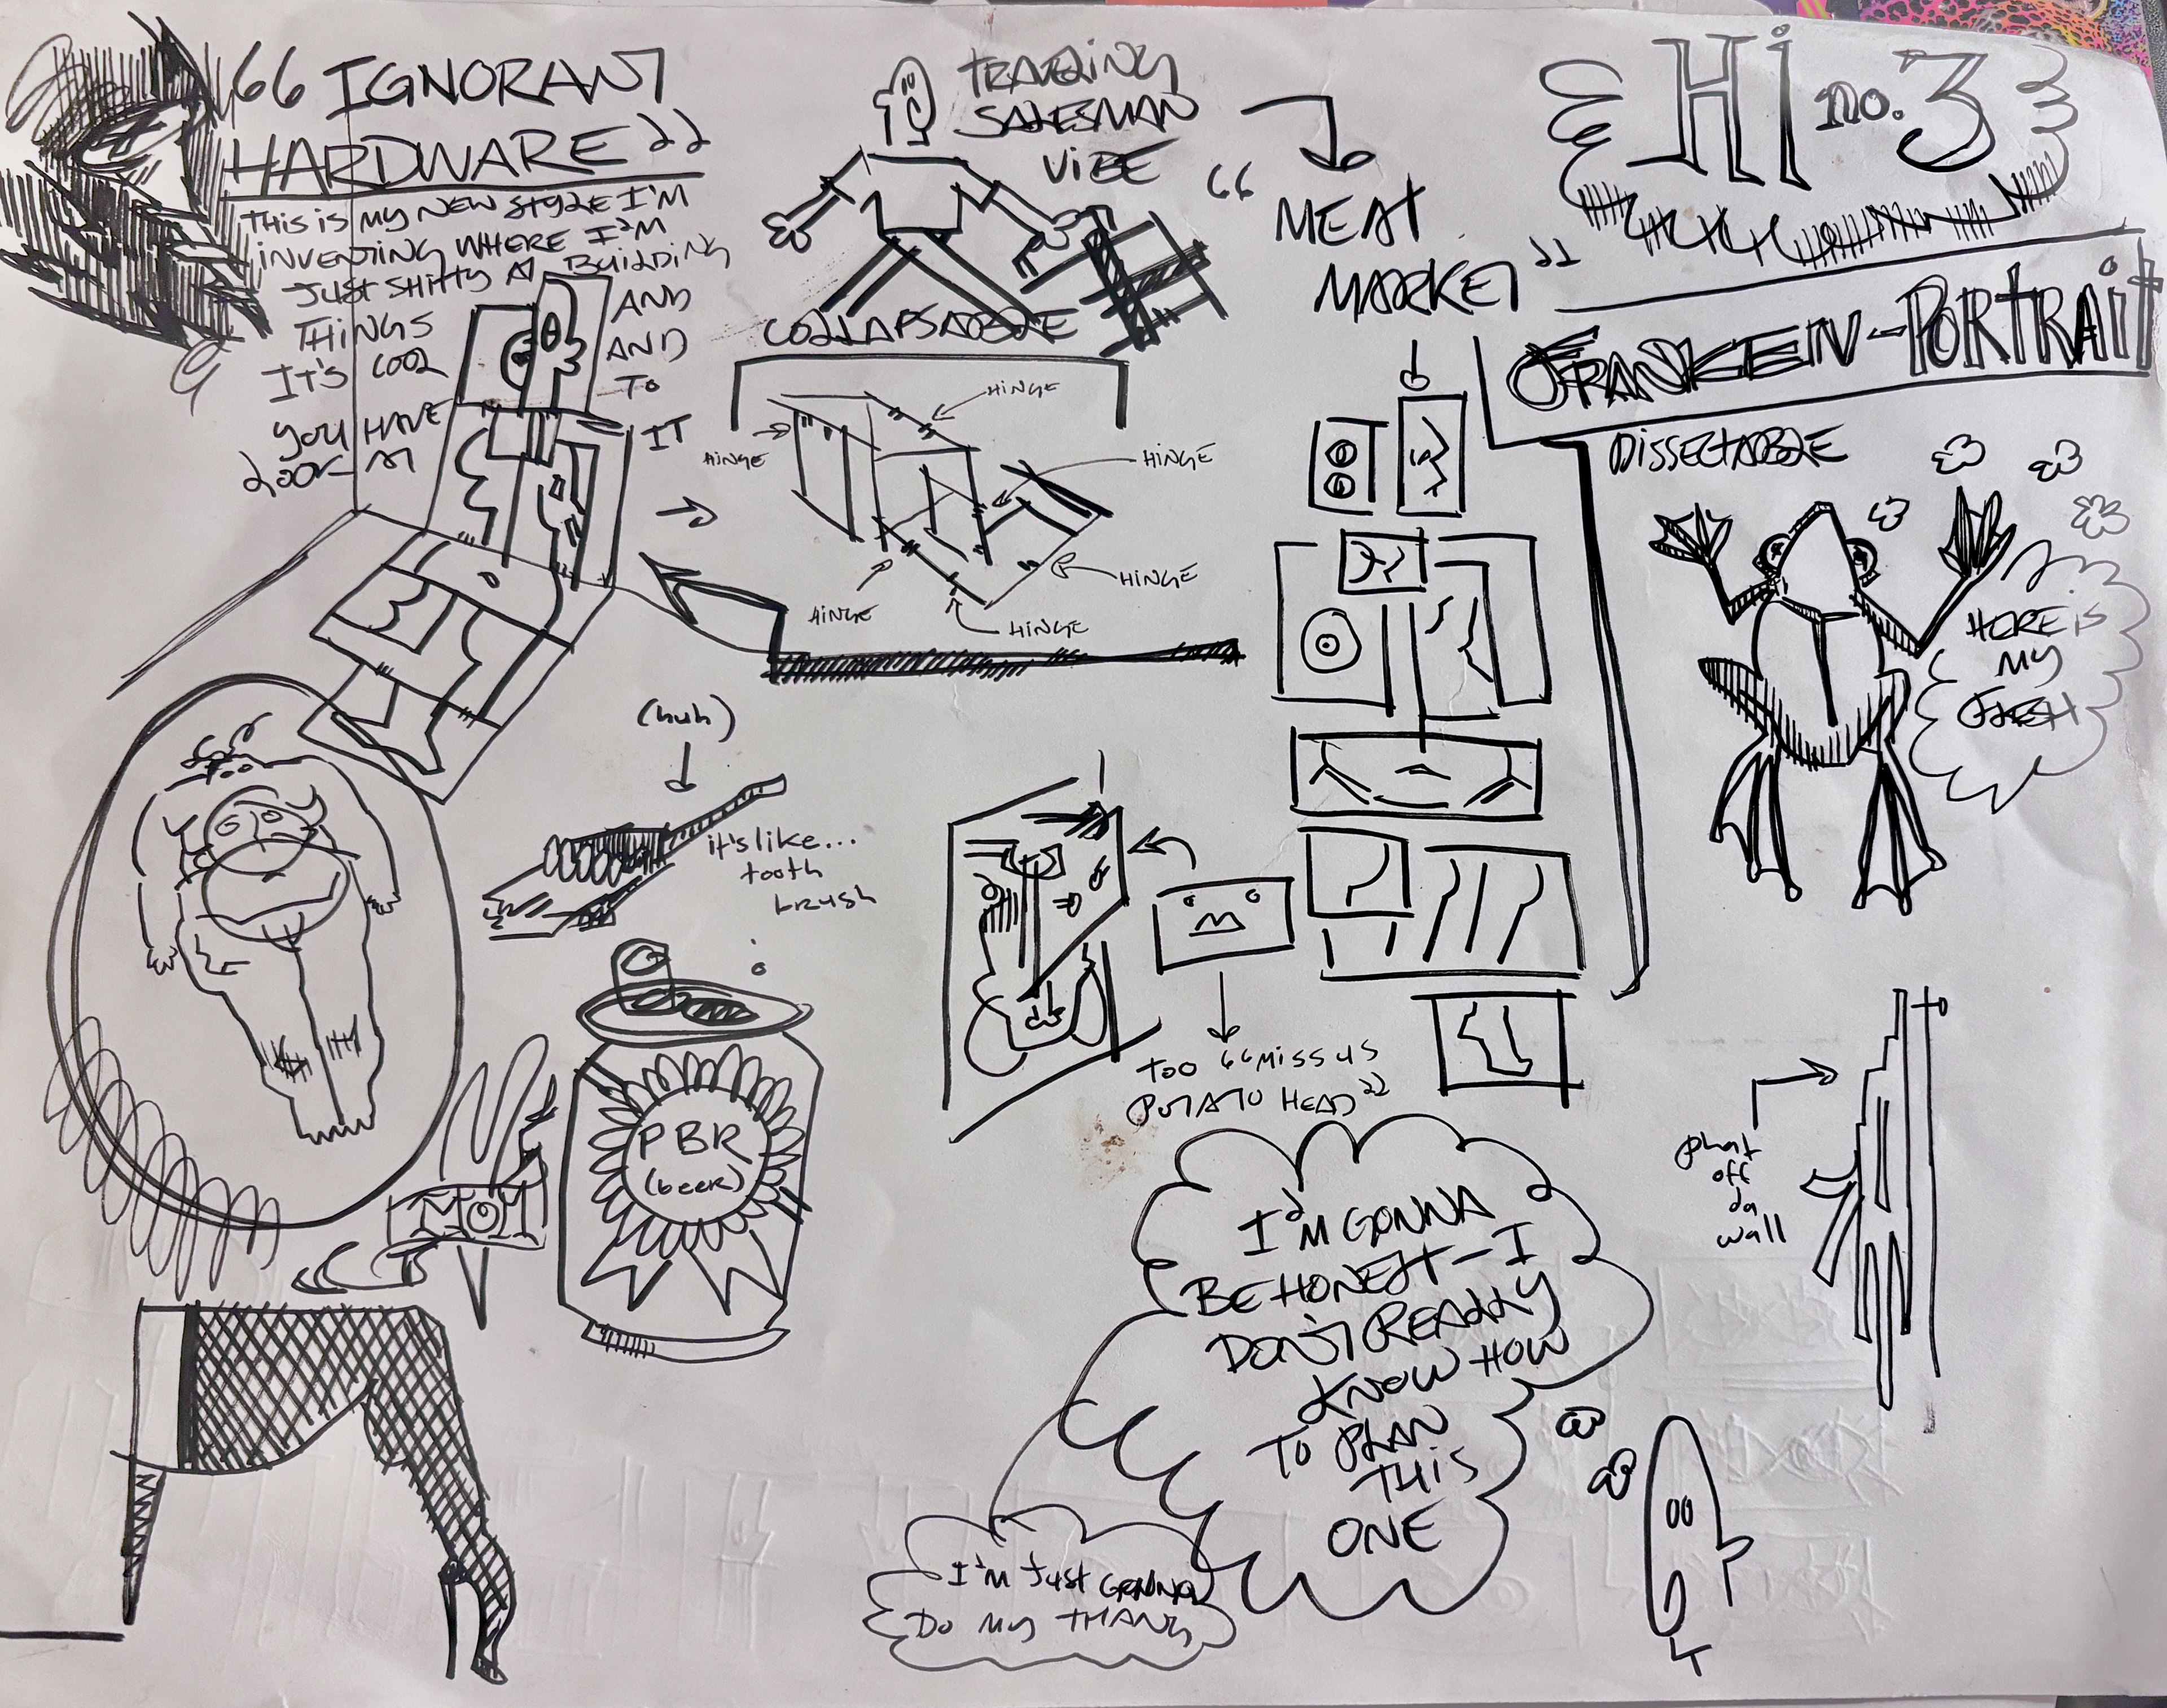 "IGNORANT
HARDWARE"
THIS IS MY NEW STYLE I'M
INVENTING WHERE I'M
JUST SHITTY AT BUILDING
THINGS AND
IT'S COOL AND
YOU HAVE TO
LOOK AT IT
TRAVELING
SALESMAN
VIBE
"MEAT
MARKET"
Hi no. 3
FRANKEN-PORTRAIT
COLLAPSABLE
HINGE
HINGE
HINGE
HINGE
HINGE
HINGE
DISSECTABLE
HERE IS
MY
FLESH
(huh)
it's like...
tooth
brush
TOO "MISSUS
POTATO HEAD"
PBR
(beer)
MOM
phat
off
da
wall
I'M GONNA
BE HONEST - I
DON'T REALLY
KNOW HOW
TO PLAN
THIS
ONE
I'M JUST GONNA
DO MY THANG